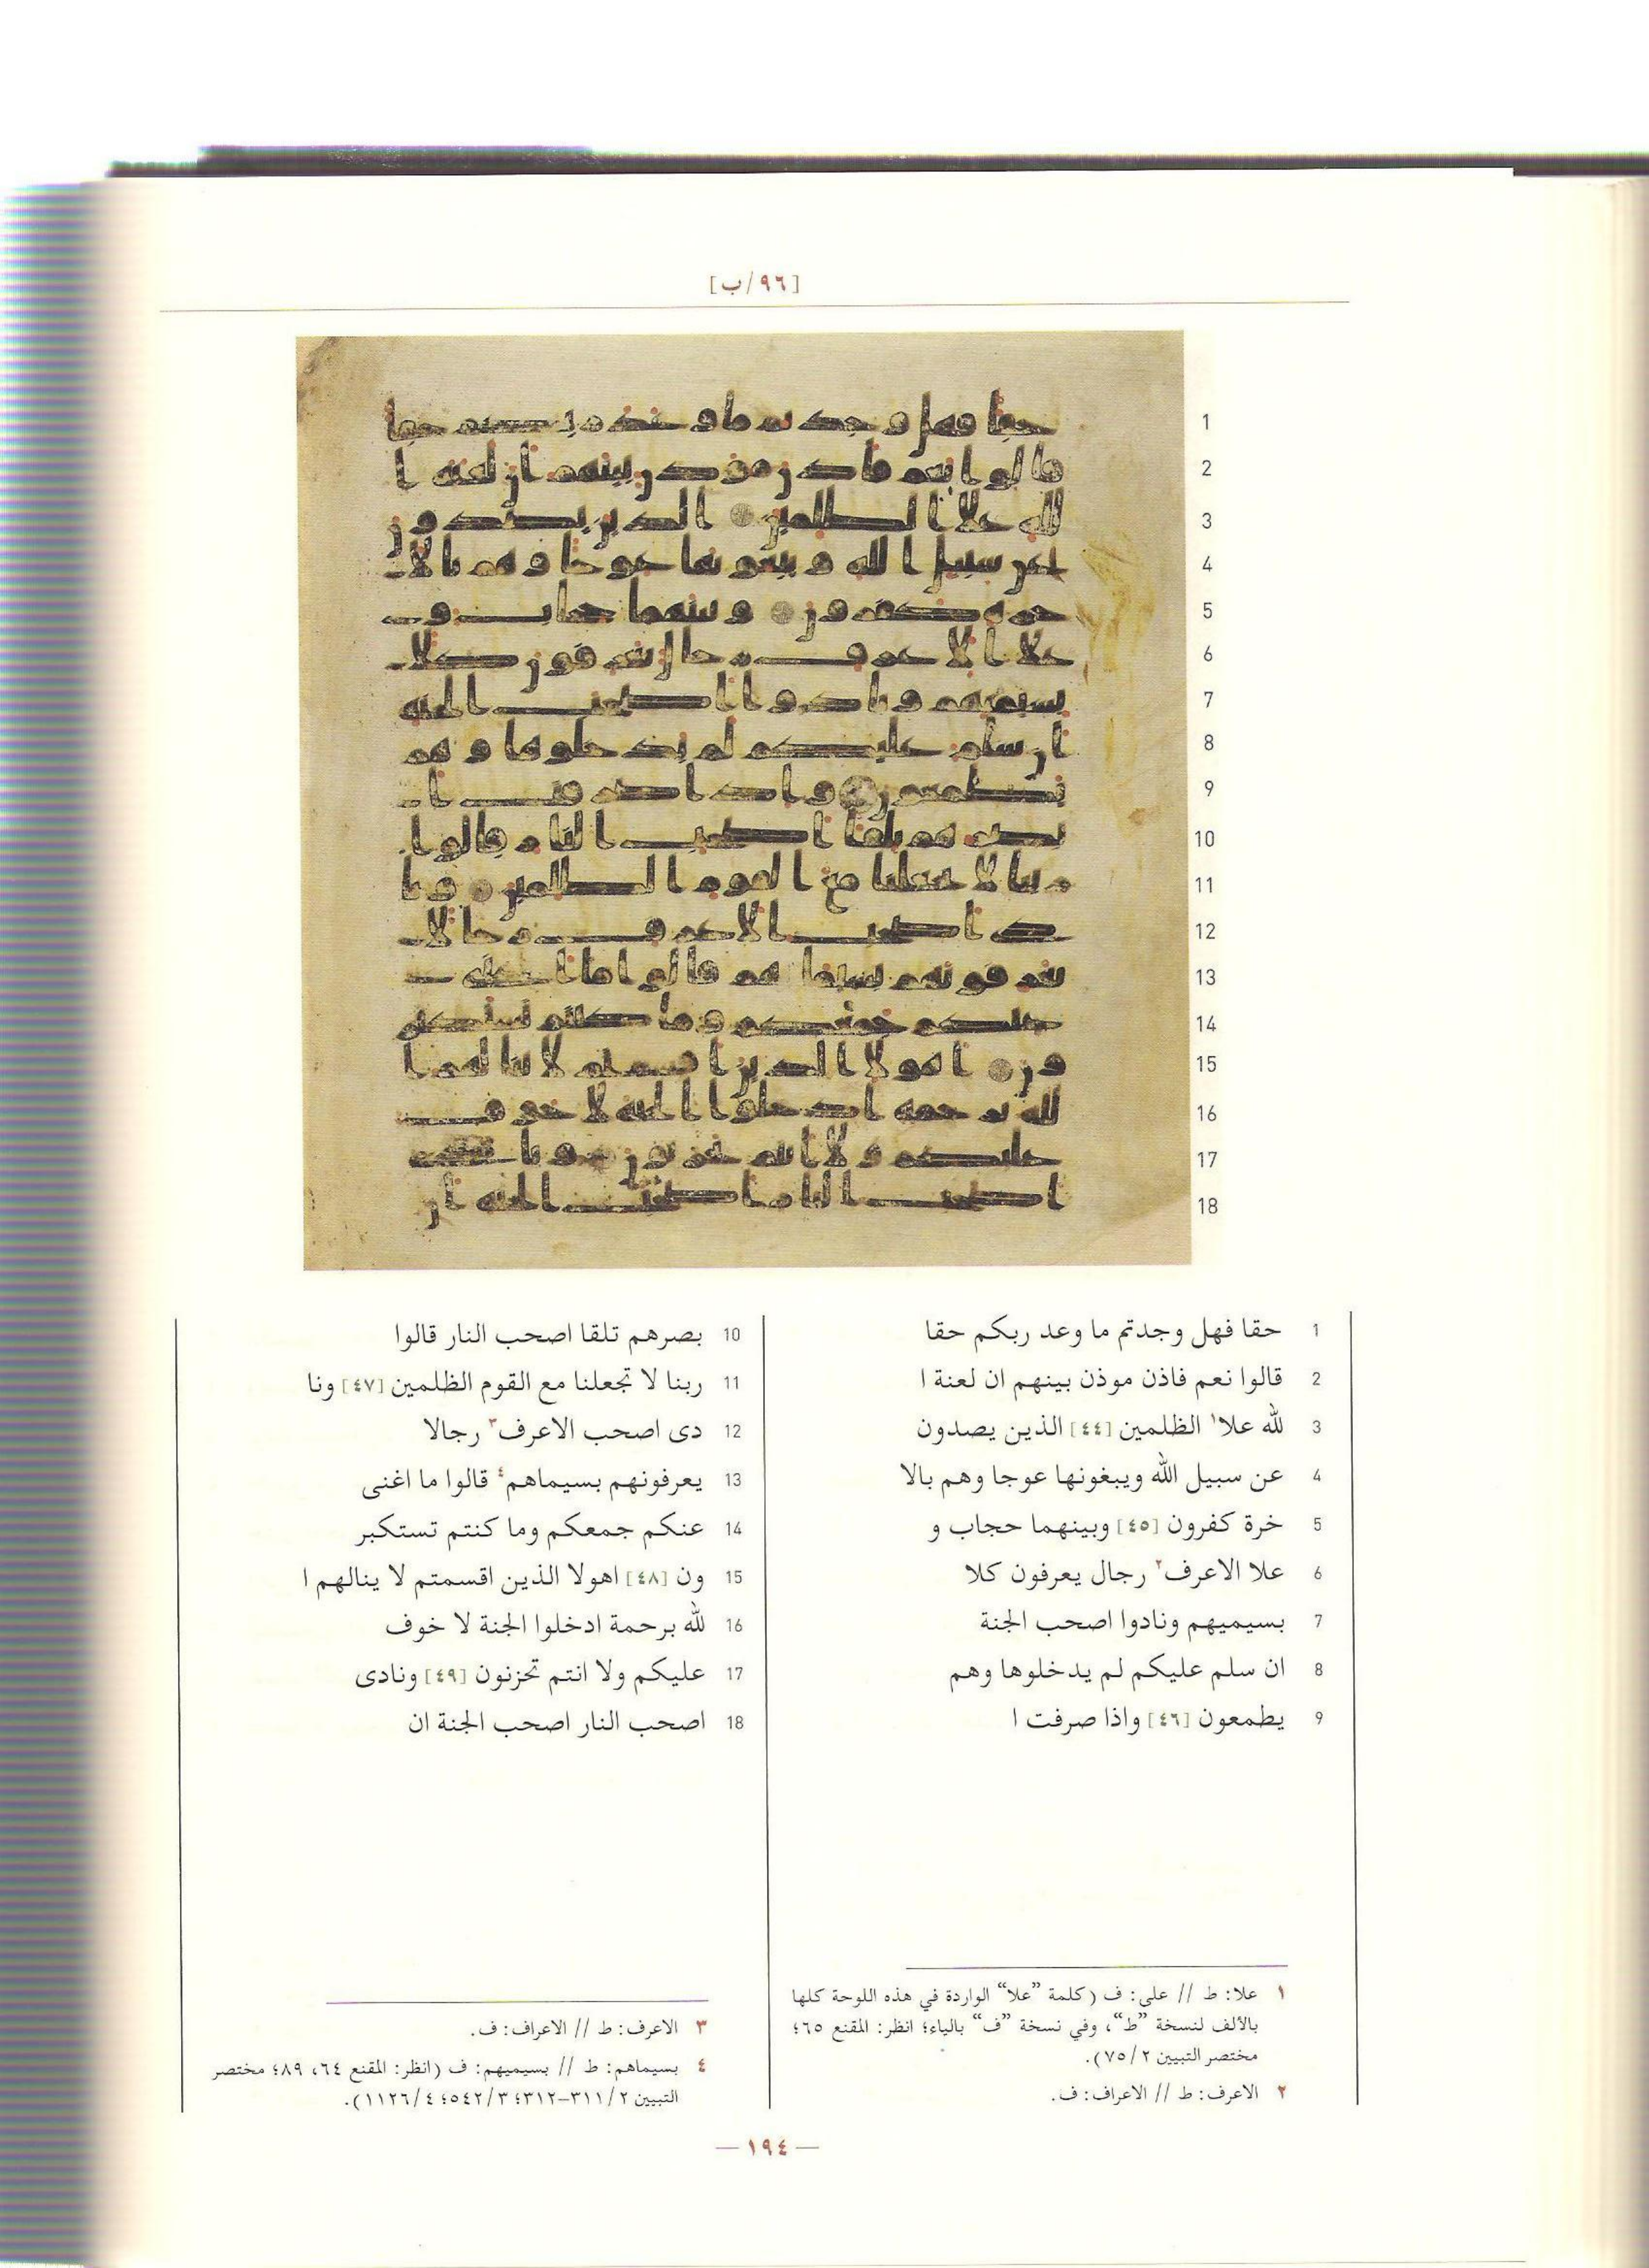 [٩٦/ب]
1 حقا فهل وجدتم ما وعد ربكم حقا
2 قالوا نعم فاذن موذن بينهم ان لعنة ا
3 لله علا١ الظلمين [٤٤] الذين يصدون
4 عن سبيل الله ويبغونها عوجا وهم بالا
5 خرة كفرون [٤٥] وبينهما حجاب و
6 علا الاعرف٢ رجال يعرفون كلا
7 بسيميهم ونادوا اصحب الجنة
8 ان سلم عليكم لم يدخلوها وهم
9 يطمعون [٤٦] واذا صرفت ا
10 بصرهم تلقا اصحب النار قالوا
11 ربنا لا تجعلنا مع القوم الظلمين [٤٧] ونا
12 دى اصحب الاعرف٣ رجالا
13 يعرفونهم بسيماهم٤ قالوا ما اغنى
14 عنكم جمعكم وما كنتم تستكبر
15 ون [٤٨] اهولا الذين اقسمتم لا ينالهم ا
16 لله برحمة ادخلوا الجنة لا خوف
17 عليكم ولا انتم تحزنون [٤٩] ونادى
18 اصحب النار اصحب الجنة ان
١ علا: ط // على: ف (كلمة ”علا“ الواردة في هذه اللوحة كلها
بالألف لنسخة ”ط“، وفي نسخة ”ف“ بالياء؛ انظر: المقنع ٦٥؛
مختصر التبيين ٧٥/٢).
٢ الاعرف: ط // الاعراف: ف.
٣ الاعرف: ط // الاعراف: ف.
٤ بسيماهم: ط // بسيميهم: ف (انظر: المقنع ٦٤، ٨٩؛ مختصر
التبيين ٣١١/٢-٣١٢؛ ٥٤٢/٣؛ ١١٢٦/٤).
— ١٩٤ —